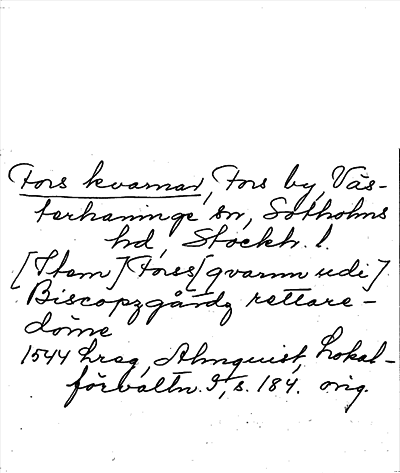 Fors kvarnar, Fors by, Väs-
terhaninge sn, Sotholms
hd, Stockh. l.
[Item] Forss [qvarnn udi]
Biscopzgårdz rettare-
döme
1544 hrag, Almquist, Lokal-
förvaltn. I, s. 184. orig.